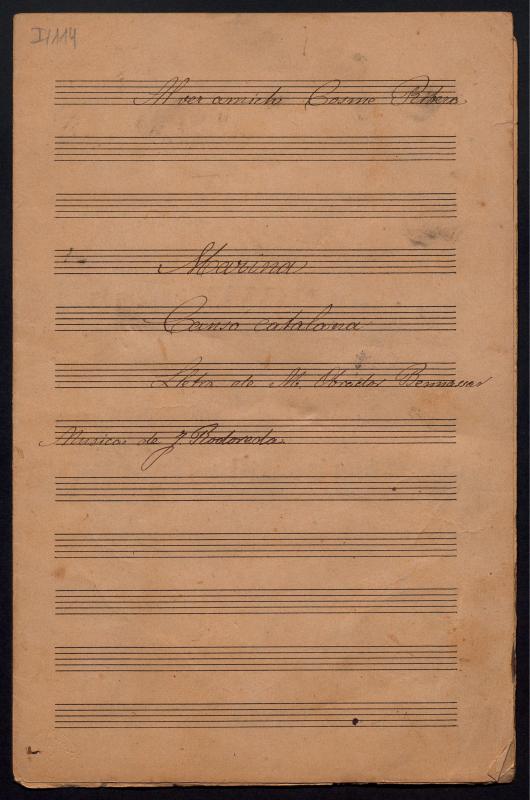 I/114
Al ver amich Cosme Ribera
Marina
Cansó catalana
Lletra de M. Obrador Bennassar
Musica de J. Rodoreda